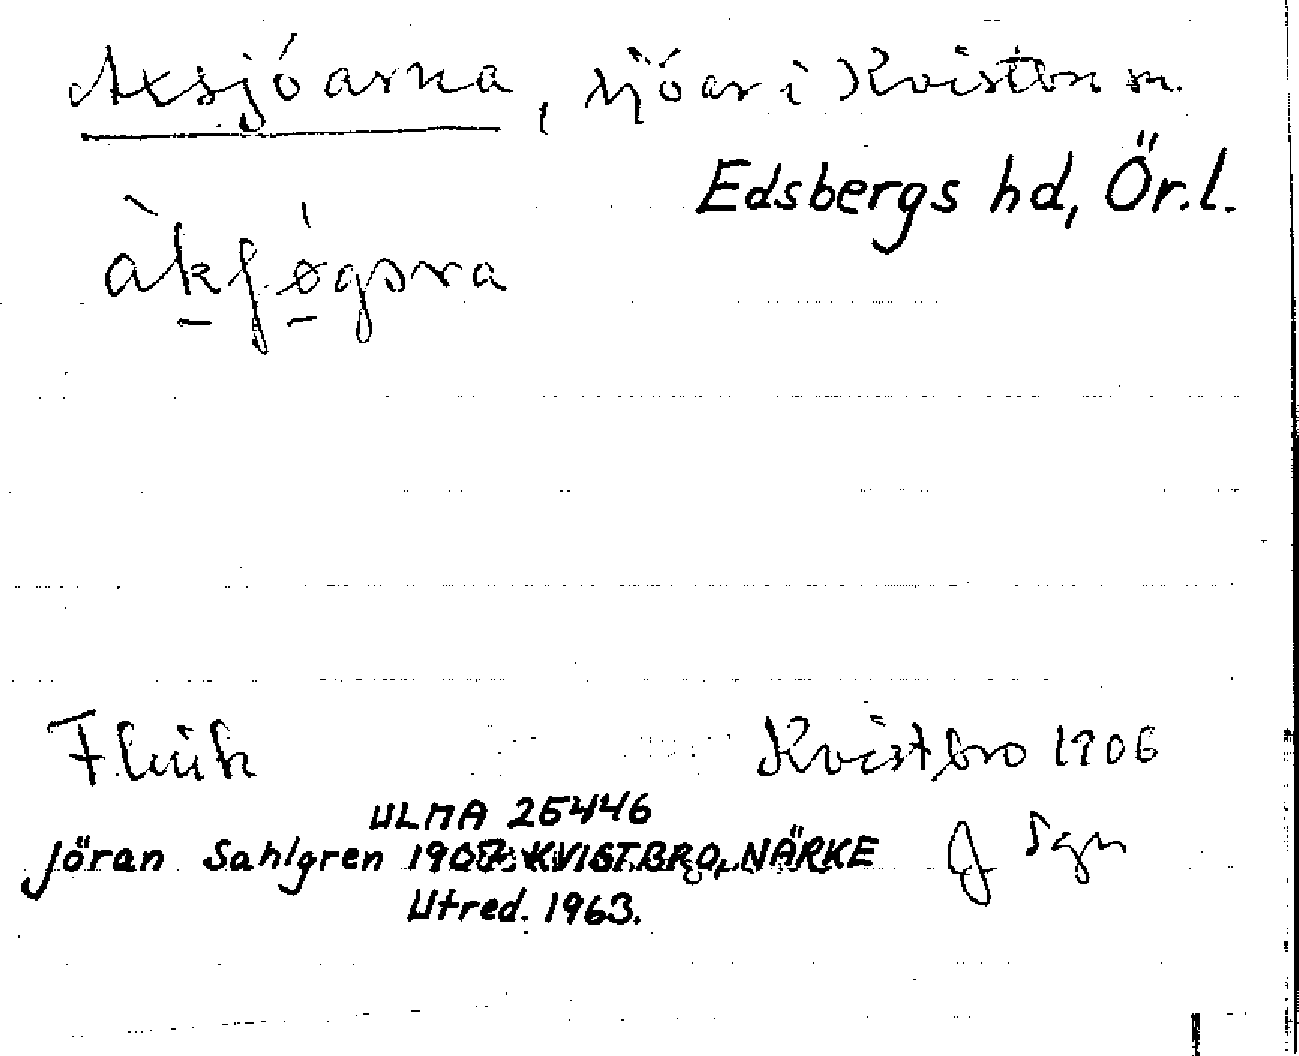 Axsjöarna, sjöar i Kvistbro sn.
Edsbergs hd, Ör.l.
Kvistbro 1906
ULMA 25446
Jöran Sahlgren 1907. KVISTBRO, NÄRKE
J Sgn
Utred. 1963.